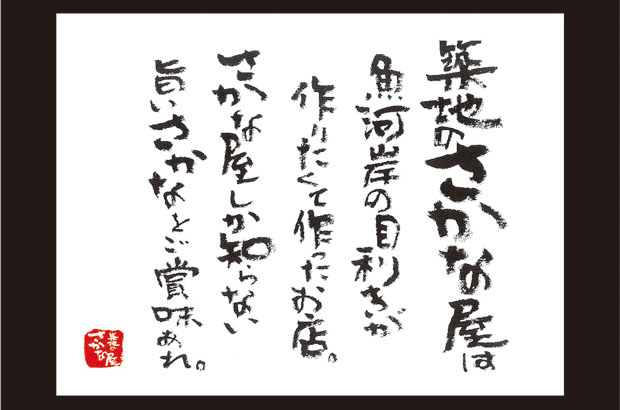 築地のさかな屋は
魚河岸の目利きが
作りたくて作ったお店。
さかな屋しか知らない
旨いさかなをご賞味あれ。
築地
さかな屋